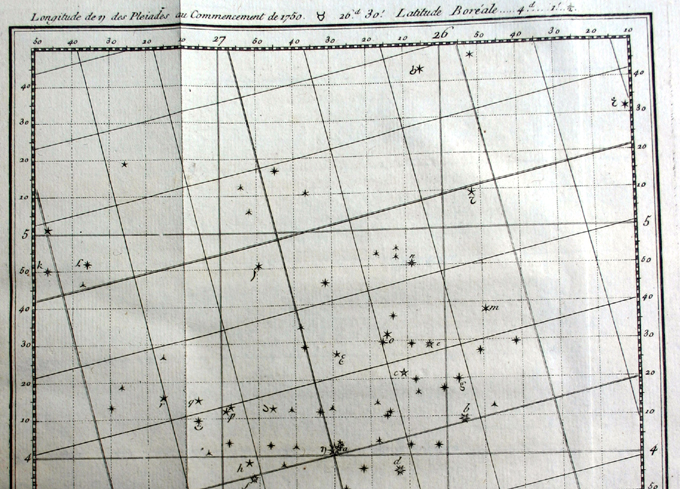 Longitude de η des Pleiades au Commencement de 1750. ♉ 26.d 30.' Latitude Boréale.....4.d...1.'
50 40 30 20 10 27 50 40 30 20 10 26 50 40 30 20 10
40 40
30 30
20 20
10 10
5 5
k 50 50
40 m 40
30 e 30
20 c 20
10 q p b 10
4 η a 4
h d
50